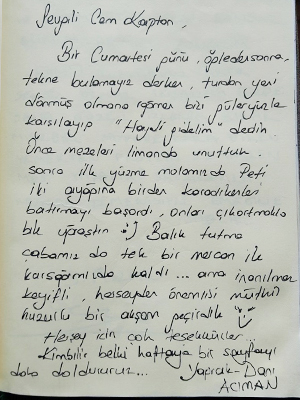 Sevgili Cem Kaptan,
Bir Cumartesi günü, öğledensonra,
tekne bulamayız derken, turdan yeni
dönmüş olmana rağmen bizi güleryüzle
karşılayıp "Haydi gidelim" dedin.
Önce mezeleri limanda unuttuk.
sonra ilk yüzme molamızda Peti
iki ayağına birden karadikenleri
batırmayı başardı, onları çıkartmakla
bile uğraştın :) Balık tutma
çabamız da tek bir mercan ile
karşınızda kaldı... ama inanılmaz
keyifli, herşeyden önemlisi mutlu
huzurlu bir akşam geçirdik
Herşey için çok teşekkürler..
Kimbilir belki haftaya bir sayfayı
daha doldururuz... Yaprak-Dani
ACIMAN